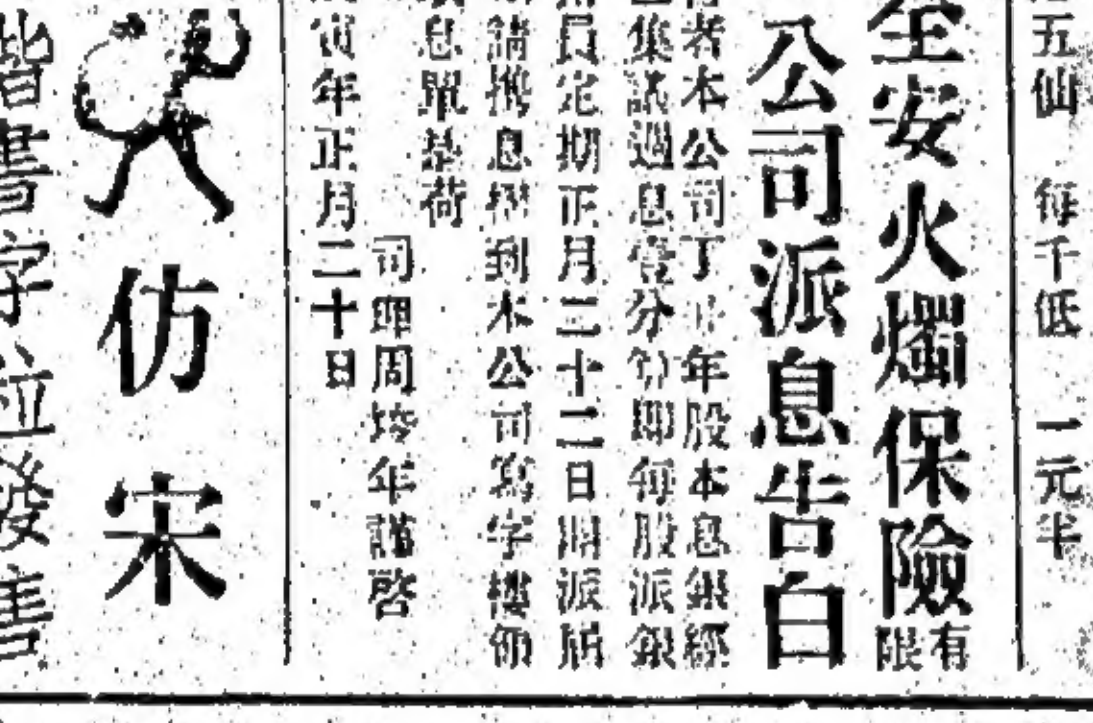 五仙 每千低 一元半
全安火燭保險有限
公司派息告白
者本公司丁丑年股本息銀經
集議過息壹分 即每股派銀
員定期正月二十二日開派
請携息摺到本公司寫字樓領
息單是荷
司理周埈年謹啓
寅年正月二十日
仿宋
楷書字粒發售